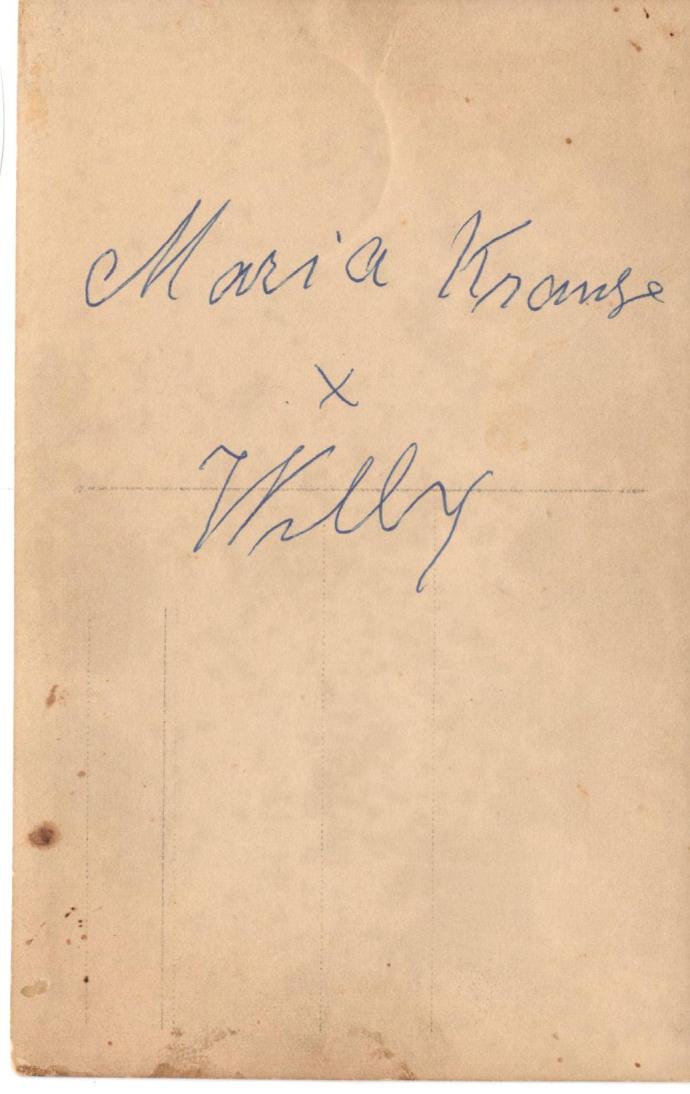 Maria Krause
x
Willy